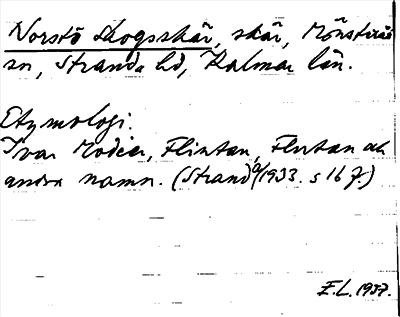 Norstö Skogsskär, skär, Mönsterås
sn, Stranda hd, Kalmar län.
Etymologi.
Ivar Modéer, Flintan, Flutan och
andra namn. (Strand 1933. s 16 f.)
E.L. 1937.